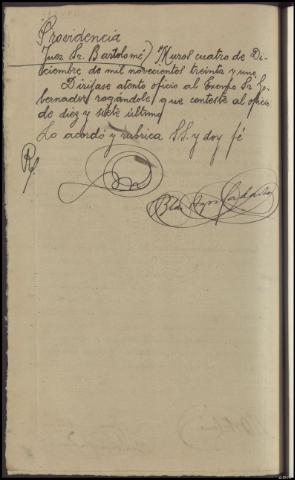 Providencia
Juez Sr. Bartolomé) Murol cuatro de Di-
ciembre de mil novecientos treinta y uno.
Dirijase atento oficio al Excmo Sr. Go-
bernador, rogándole, que conteste al oficio
de diez y siete último
Lo acordó y rubrica S.S. y doy fé